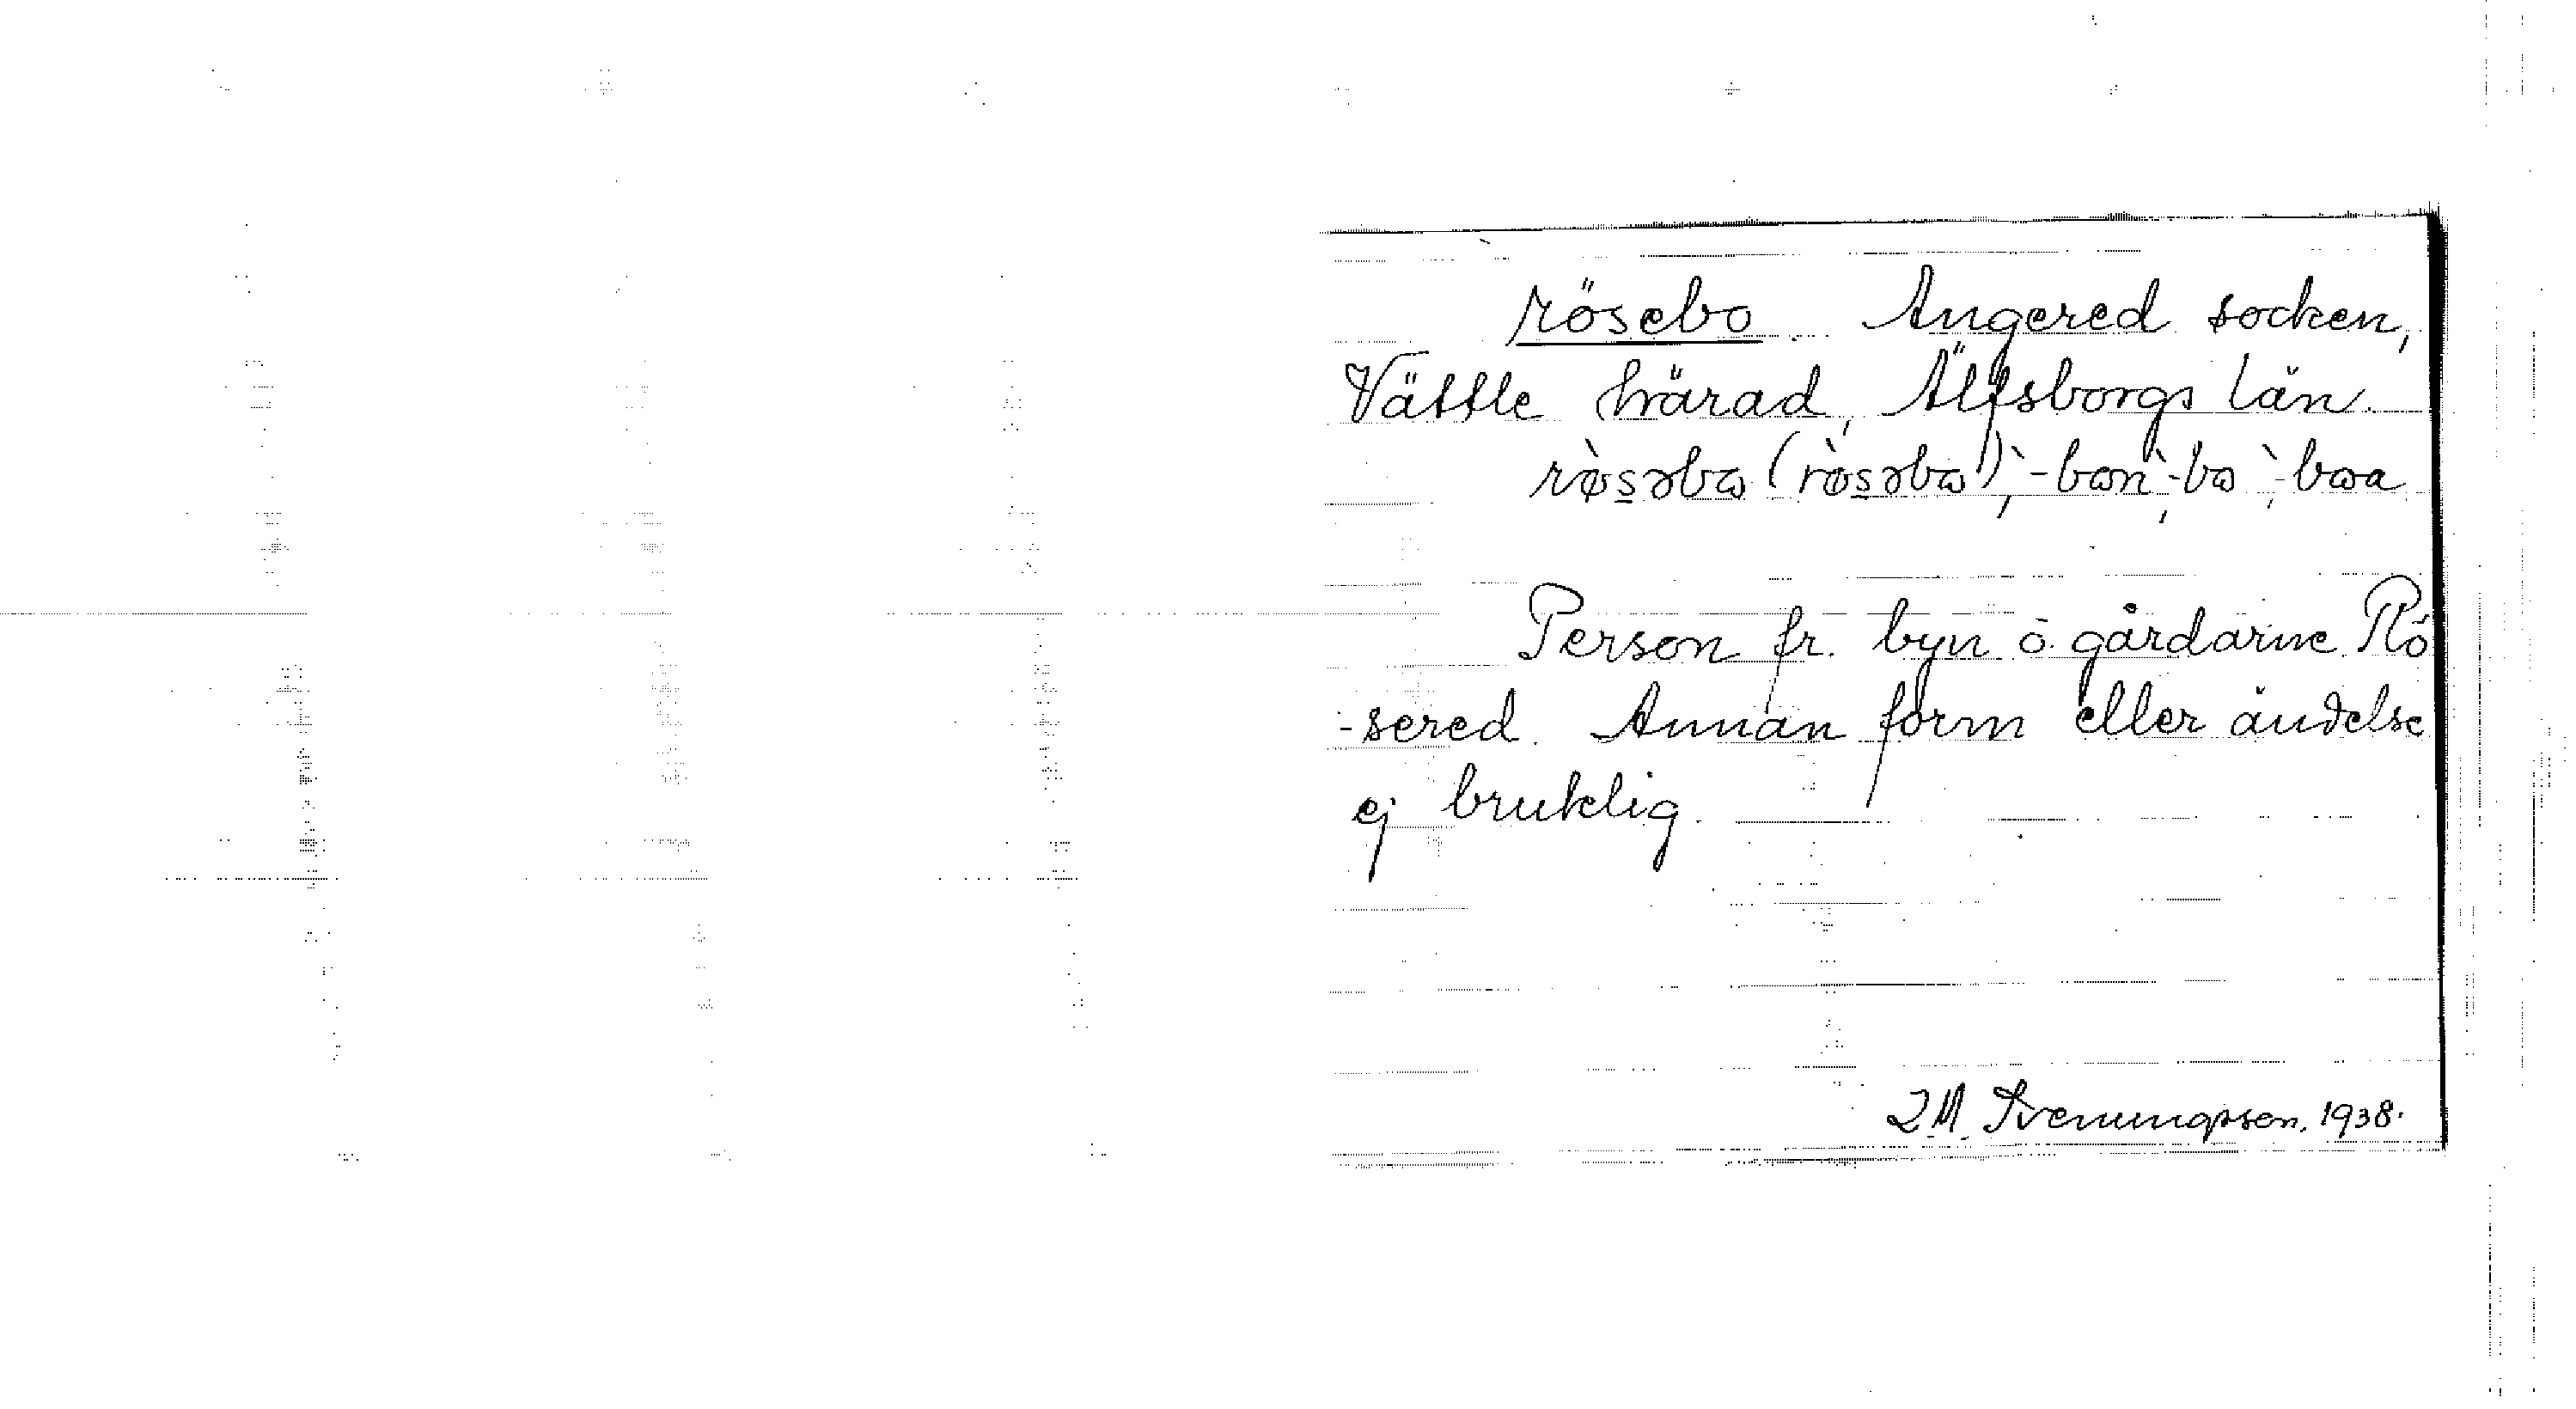 rösebo Angered socken,
Vättle härad, Älfsborgs län.
rø̀s̱əbω (rø̀s̱əbω'), `-bωn, `-bω, `-bωa
Person fr. byn o. gårdarne Rö
-sered. Annan form eller ändelse
ej bruklig.
Svenungsson. 1938.